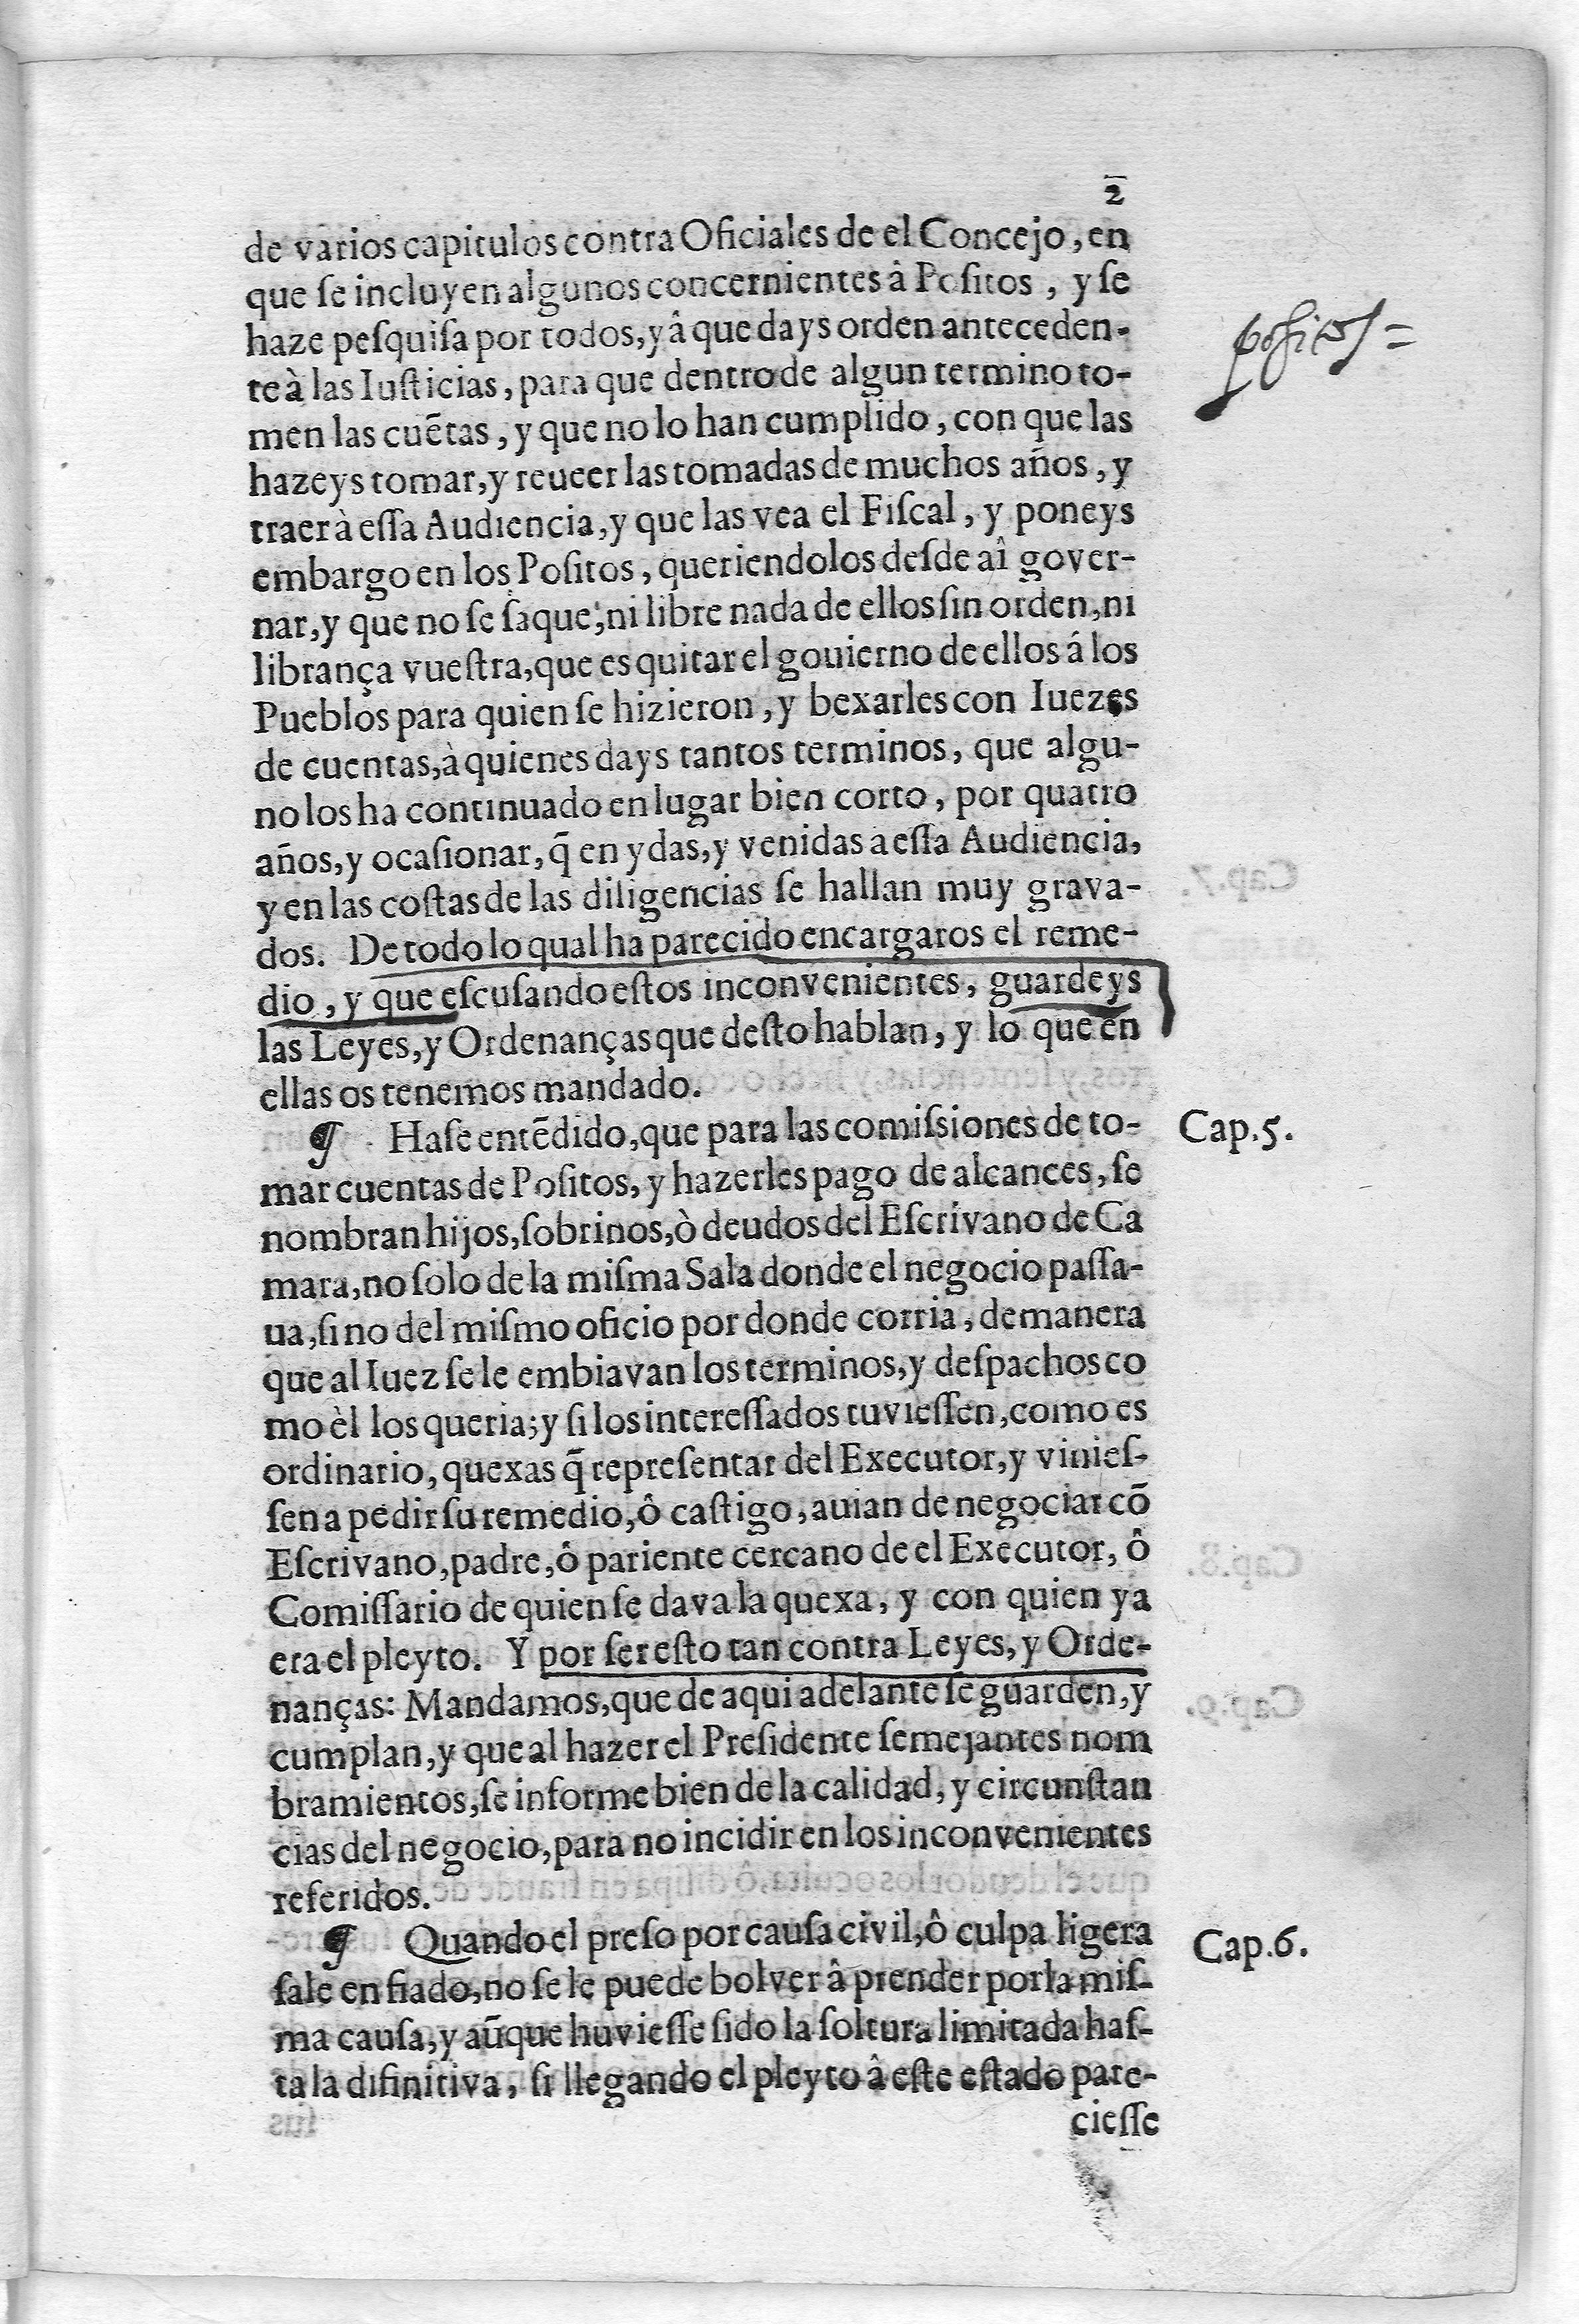 2
de varios capitulos contra Oficiales de el Concejo, en
que ſe incluyen algunos concernientes â Poſitos, y ſe
haze peſquiſa por todos, y â que days orden anteceden-
te à las Iuſticias, para que dentro de algun termino to-
men las cuẽtas, y que no lo han cumplido, con que las
hazeys tomar, y reueer las tomadas de muchos años, y
traer à eſſa Audiencia, y que las vea el Fiſcal, y poneys
embargo en los Poſitos, queriendolos deſde aî gover-
nar, y que no ſe ſaque, ni libre nada de ellos ſin orden, ni
librança vueſtra, que es quitar el gouierno de ellos á los
Pueblos para quien ſe hizieron, y bexarles con Iuezes
de cuentas, à quienes days tantos terminos, que algu-
no los ha continuado en lugar bien corto, por quatro
años, y ocaſionar, q̃ en ydas, y venidas a eſſa Audiencia,
y en las coſtas de las diligencias ſe hallan muy grava-
dos. De todo lo qual ha parecido encargaros el reme-
dio, y que eſcuſando eſtos inconvenientes, guardeys
las Leyes, y Ordenanças que deſto hablan, y lo que en
ellas os tenemos mandado.
¶ Haſe entẽdido, que para las comiſsiones de to-
mar cuentas de Poſitos, y hazerles pago de alcances, ſe
nombran hijos, ſobrinos, ò deudos del Eſcrivano de Ca
mara, no ſolo de la miſma Sala donde el negocio paſſa-
ua, ſino del miſmo oficio por donde corria, de manera
que al Iuez ſe le embiavan los terminos, y deſpachos co
mo èl los queria; y ſi los intereſſados tuvieſſen, como es
ordinario, quexas q̃ repreſentar del Executor, y vinieſ-
ſen a pedir ſu remedio, ô caſtigo, auian de negociar cõ
Eſcrivano, padre, ô pariente cercano de el Executor, ô
Comiſſario de quien ſe dava la quexa, y con quien ya
era el pleyto. Y por ser eſto tan contra Leyes, y Orde-
nanças: Mandamos, que de aqui adelante ſe guarden, y
cumplan, y que al hazer el Preſidente ſemejantes nom
bramientos, ſe informe bien de la calidad, y circunſtan
cias del negocio, para no incidir en los inconvenientes
referidos.
¶ Quando el preſo por cauſa civil, ô culpa ligera
ſale en fiado, no ſe le puede bolver â prender por la miſ-
ma cauſa, y aũque huvieſſe ſido la ſoltura limitada haſ-
ta la difinitiva, ſi llegando el pleyto â eſte eſtado pare-
cieſſe
poſitos =
Cap. 5.
Cap. 6.